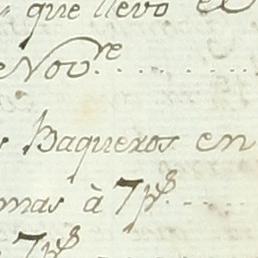 que llevo el
e Nov.re
s Baqueros en
mas à 7 p.s
7 p.s